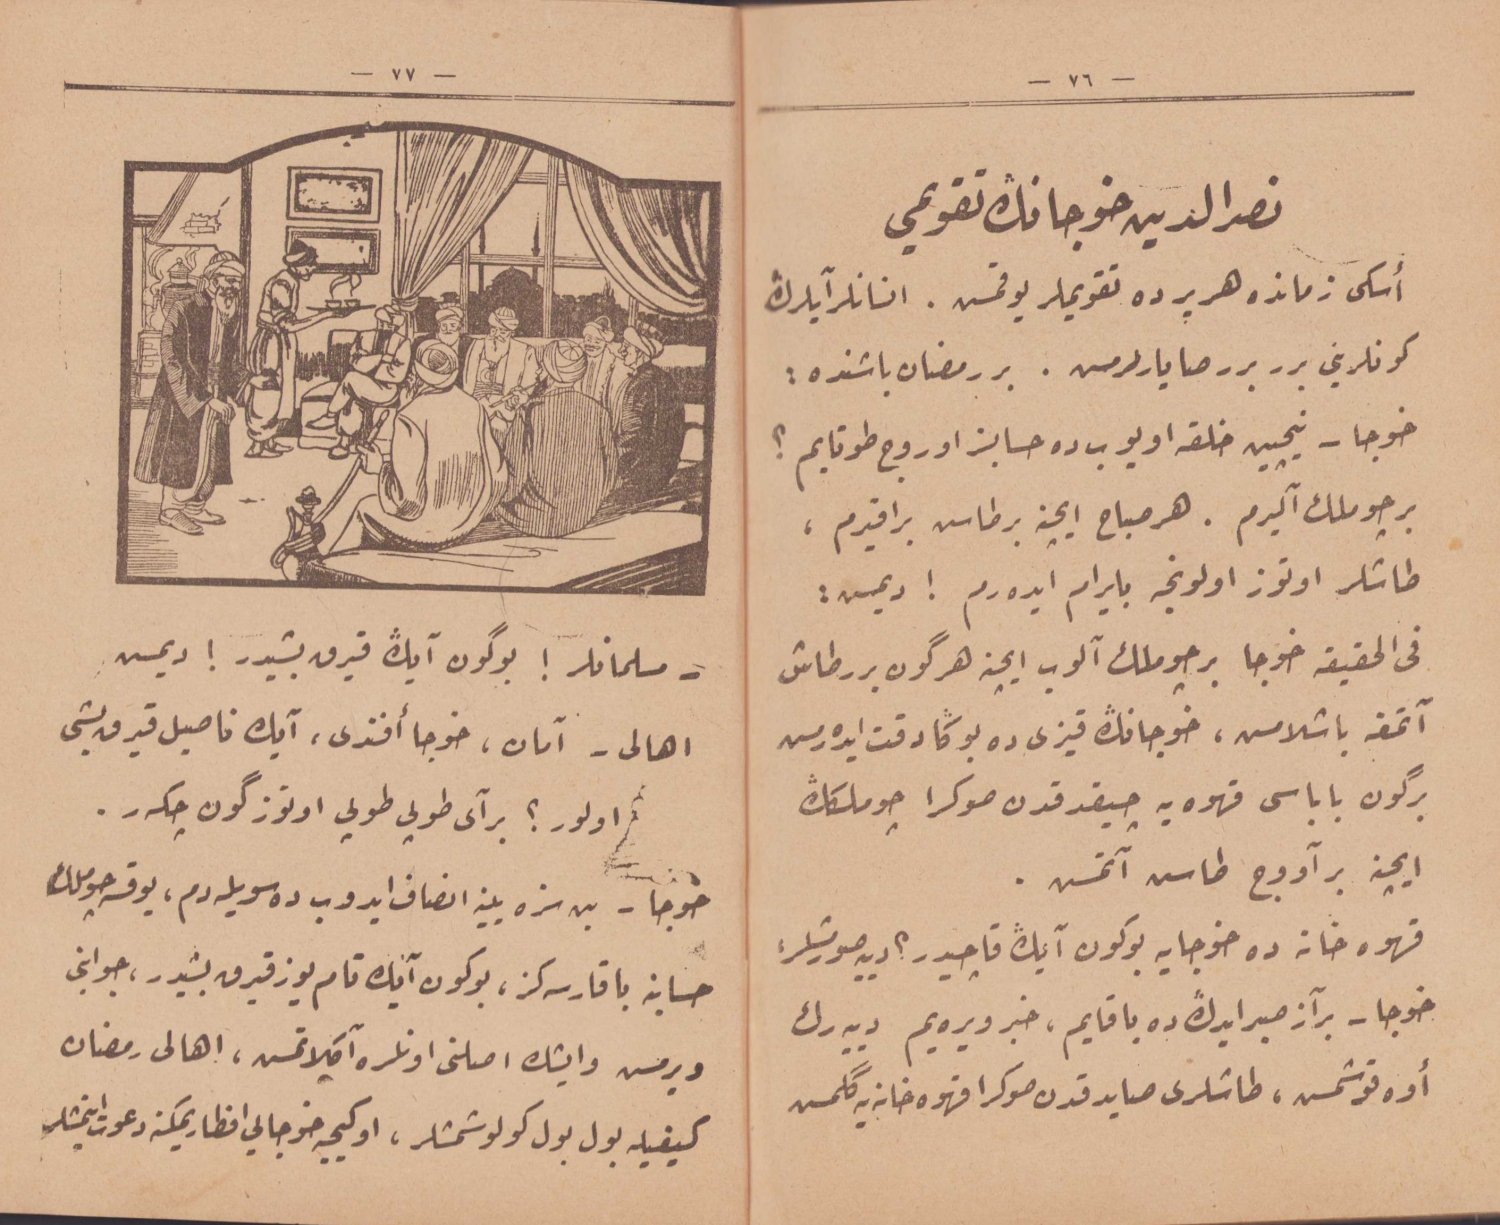 — ٧٦ —
نصرالدین خوجانڭ تقویمی
أسکی زمانده هر یرده تقویملر یوقمش . انسانلر آیلرڭ
کونلرینی برر برر صایارلرمش . بر رمضان باشنده :
خوجا ـ نیچین خلقه اویوب ده حسابسز اوروج طوتایم ؟
بر چوملك آلیرم . هر صباح ایچنه بر طاش براقیرم ،
طاشلر اوتوز اولونجه بایرام ایده رم ! دیمش :
فی الحقیقه خوجا بر چوملك آلوب ایچنه هرگون برر طاش
آتمغه باشلامش ، خوجانڭ قیزی ده بوڭا دقت ایدەرمش
برگون باباسی قهوه یه چیقدقدن صوکرا چوملکڭ
ایچنه بر آووج طاش آتمش .
قهوه خانه ده خوجایه بوکون آیڭ قاچیدر ؟ دییه صورمشلر ،
خوجا ـ برآز صبر ایدڭ ده باقایم ، خبر ویره یم دییه رك
أوه قوشمش ، طاشلری صایدقدن صوکرا قهوه خانه یه گلمش
— ٧٧ —
ـ مسلمانلر ! بوگون آیڭ قیرق بشیدر ! دیمش
اهالی ـ آمان ، خوجا أفندی ، آیڭ ناصیل قیرق بشی
اولور ؟ بر آی طوپی طوپی اوتوز گون چکەر .
خوجا ـ بن سزه ینه انصاف ایدوب ده سویله دم ، یوقسه چوملك
حسابنه باقارسه کز ، بوکون آیڭ تام یوز قیرق بشیدر ، جوابنی
ویرمش وایشڭ اصلنی اونلره آڭلاتمش ، اهالی رمضان
کیفیله بول بول کولوشمشلر ، او کیجه خوجایی افطار یمکنه دعوت ایتمشلر